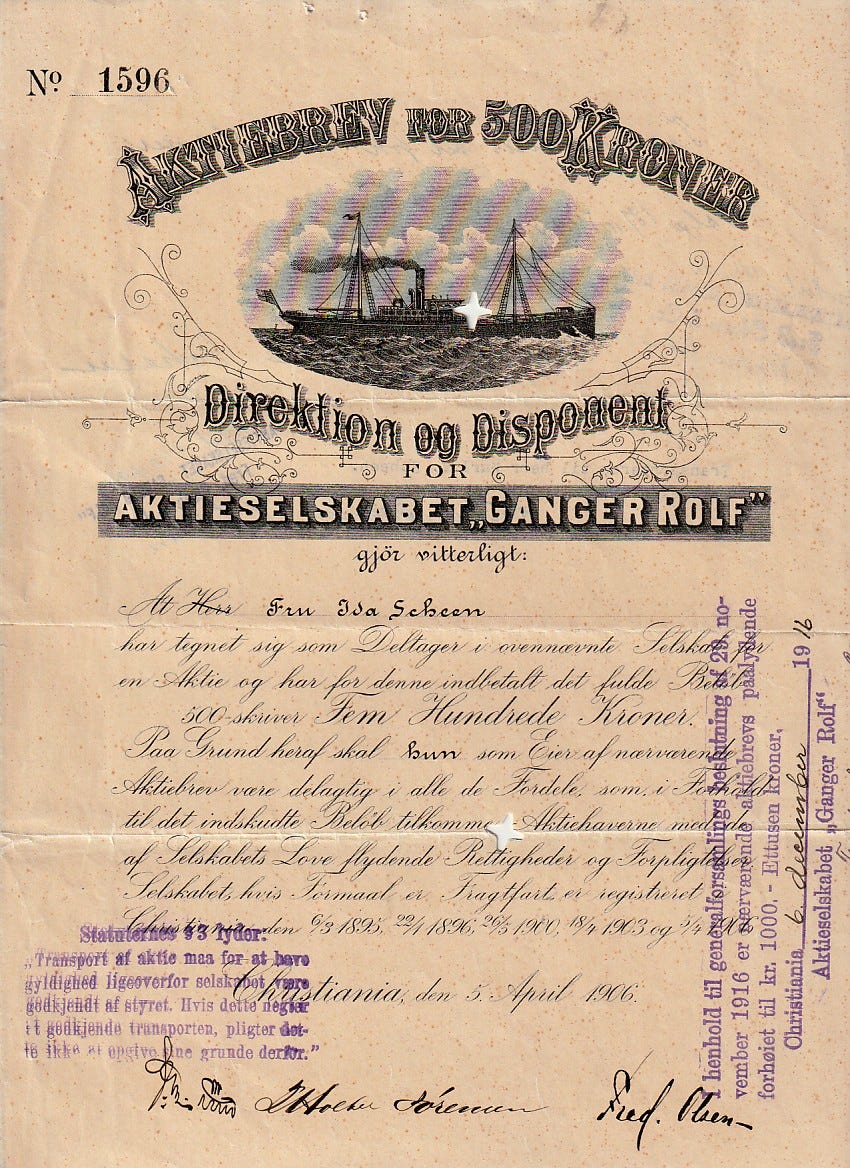 No 1596
AKTIEBREV FOR 500 KRONER
Direktion og Disponent
FOR
AKTIESELSKABET „GANGER ROLF"
gjör vitterligt:
At Herr Fru Ida Scheen
har tegnet sig som Deltager i ovennævnte Selskab for
en Aktie og har for denne indbetalt det fulde Beløb
500-skriver Fem Hundrede Kroner.
Paa Grund heraf skal hun som Eier af nærværende
Aktiebrev være delagtig i alle de Fordele, som, i Forhold
til det indskudte Beløb tilkommer Aktiehaverne med de
af Selskabets Love flydende Rettigheder og Forpligtelser
Selskabet, hvis Formaal er Fragtfart, er registreret i
Christiania den 6/3 1895, 22/1 1896, 26/3 1900, 18/4 1903 og
Christiania, den 5. April 1906.
Statuternes § 3 lyder:
„Transport af aktie maa for at have
gyldighed ligeoverfor selskabet være
godkjendt af styret. Hvis dette negter
at godkjende transporten, pligter det-
te ikke at opgive sine grunde derfor."
Fred. Olsen
I henhold til generalforsamlings beslutning af 29. no-
vember 1916 er nærværende aktiebrevs paalydende
forhøiet til kr. 1000,- Ettusen kroner.
Christiania 6. december 1916
Aktieselskabet „Ganger Rolf"